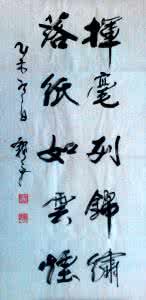 揮毫列錦繡
落紙如雲煙
乙未